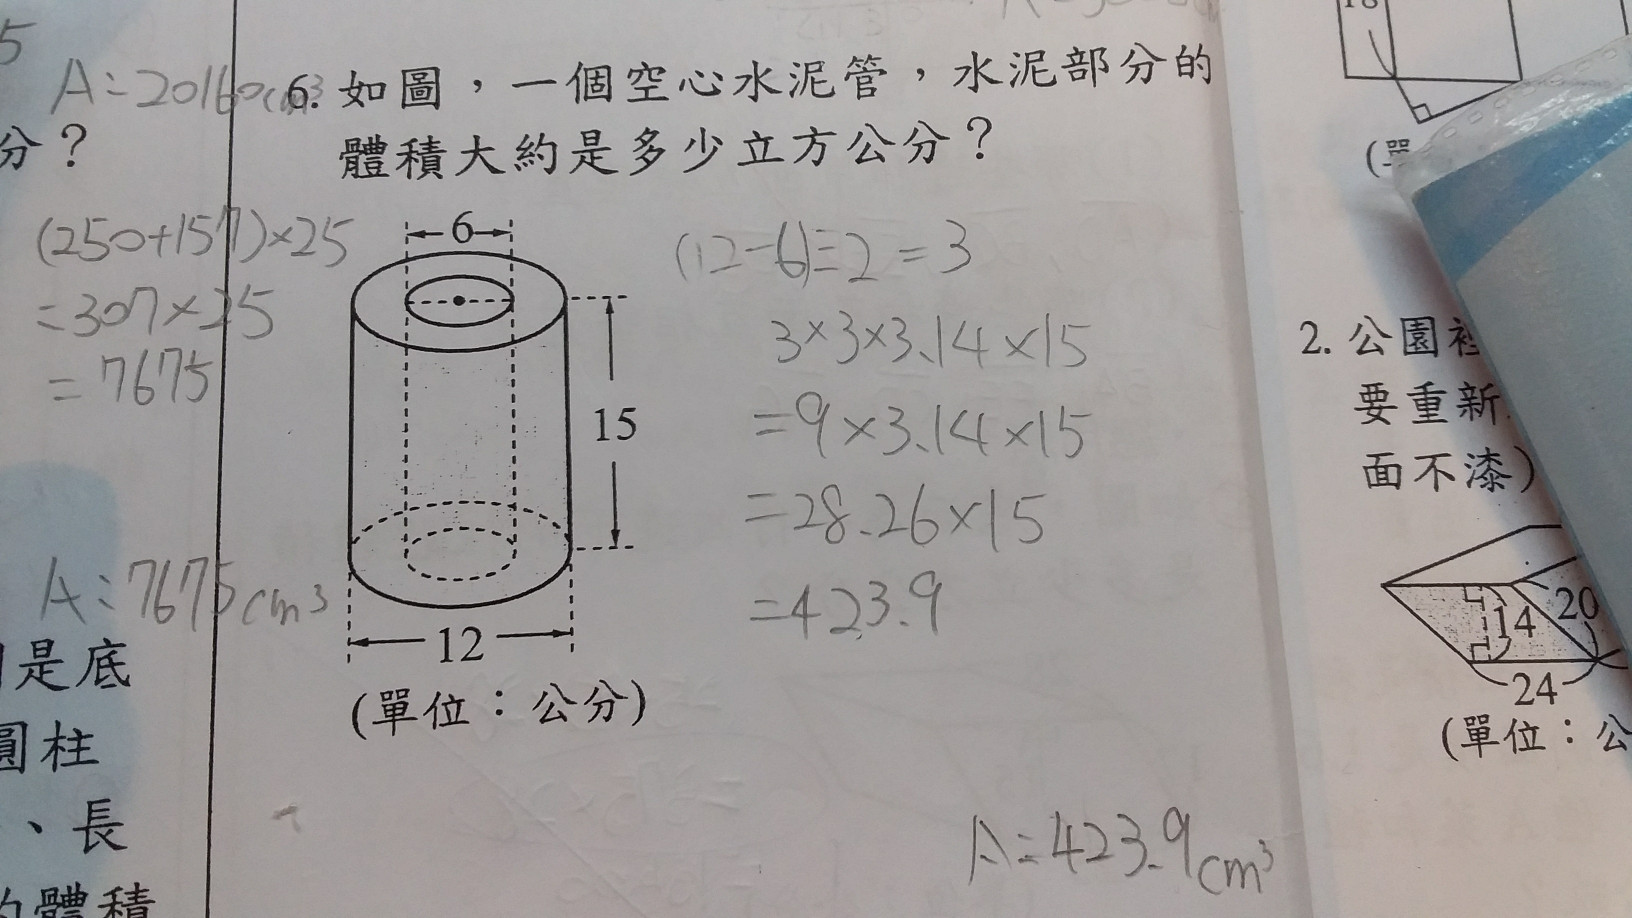 5
A=20160cm³
分？
(250+157)×25
=307×25
=7675
A=7675cm³
是底
圓柱
、長
體積
6. 如圖，一個空心水泥管，水泥部分的
體積大約是多少立方公分？
6
15
12
(單位：公分)
(12-6)÷2=3
3×3×3.14×15
=9×3.14×15
=28.26×15
=423.9
A=423.9cm³
18
(單
2. 公園裡
要重新
面不漆)
14
20
24
(單位：公